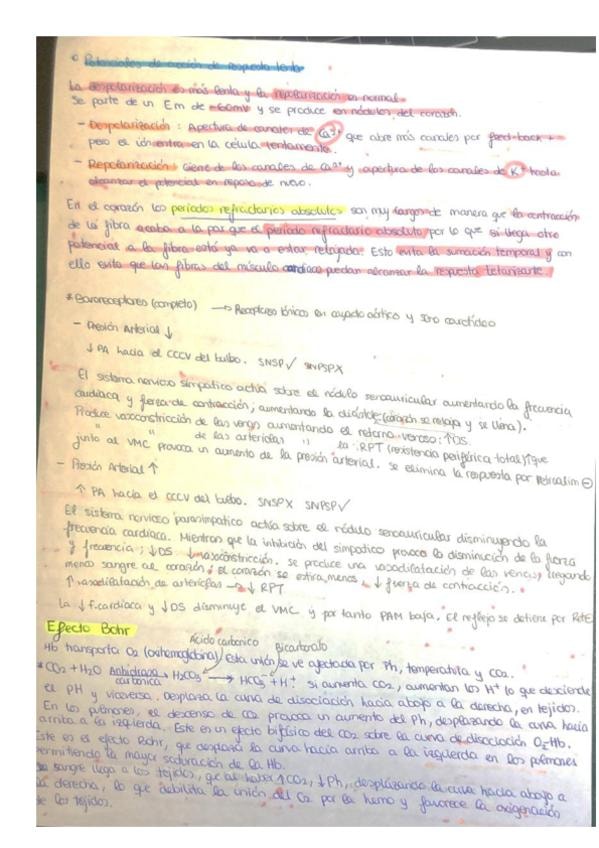 Potenciales de acción de respuesta lenta
La despolarización es más lenta y la repolarización es normal.
Se parte de un Em de -60mV y se produce en nódulos del corazón.
- Despolarización: Apertura de canales de Ca²⁺ que abre más canales por feed-back +
pero el ión entra en la célula lentamente.
- Repolarización: Cierre de los canales de Ca²⁺ y apertura de los canales de K⁺ hasta
alcanzar el potencial en reposo de nuevo.
En el corazón los periodos refractarios absolutos son muy largos de manera que la contracción
de la fibra acaba a la par que el periodo refractario absoluto, por lo que si llega otro
potencial a la fibra esta ya va a estar relajada. Esto evita la sumación temporal y con
ello evita que las fibras del músculo cardíaco puedan alcanzar la respuesta tetanizante.
* Baroreceptores (completo) → Receptores tónicos en cayado aórtico y seno carotídeo
- Presión Arterial ↓
↓ PA hacia el CCCV del bulbo. SNSP✓ SNPSPX
El sistema nervioso simpático actúa sobre el nódulo senoauricular aumentando la frecuencia
cardiaca y fuerza de contracción, aumentando la diástole (corazón se relaja y se llena).
Produce vasoconstricción de las venas aumentando el retorno venoso: ↑DS.
" " de las arteriolas " la RPT (resistencia periférica total) que
junto al VMC provoca un aumento de la presión arterial. Se elimina la respuesta por Retroalim ⊖
- Presión Arterial ↑
↑ PA hacia el CCCV del bulbo. SNSPX SNPSP✓
El sistema nervioso parasimpatico actúa sobre el nódulo senoauricular disminuyendo la
frecuencia cardiaca. Mientras que la inhibición del simpatico provoca la disminución de la fuerza
y frecuencia; ↓DS ↓vasoconstricción. se produce una vasodilatación de las venas, llegando
menos sangre al corazón, el corazón se estira menos, ↓ fuerza de contracción.
↑ vasodilatación de arteriolas → ↓ RPT
La ↓ f.cardíaca y ↓DS disminuye el VMC y por tanto PAM baja. El reflejo se detiene por
Efecto Bohr
Acido carbonico Bicarbonato
Hb transporta O₂ (oxihemoglobina) Esta unión se ve afectada por Ph, temperatura y CO₂.
* CO₂ + H₂O Anhidrasa carbónica → H₂CO₃ → HCO₃⁻ + H⁺ si aumenta CO₂, aumentan los H⁺ lo que desciende
el PH y viceversa. Desplaza la curva de disociación hacia abajo a la derecha, en tejidos.
En los pulmones, el descenso de CO₂ provoca un aumento del Ph, desplazando la curva hacia
arriba a la izquierda. Este es un efecto bifásico del CO₂ sobre la curva de disociación O₂-Hb.
Este es el efecto Bohr, que desplaza la curva hacia arriba a la izquierda en los pulmones
permitiendo la mayor saturación de la Hb.
sangre llega a los tejidos, que al haber ↑CO₂, ↓Ph, desplazando la curva hacia abajo a
la derecha, lo que debilita la unión del O₂ por la hemo y favorece la oxigenación
de los tejidos.